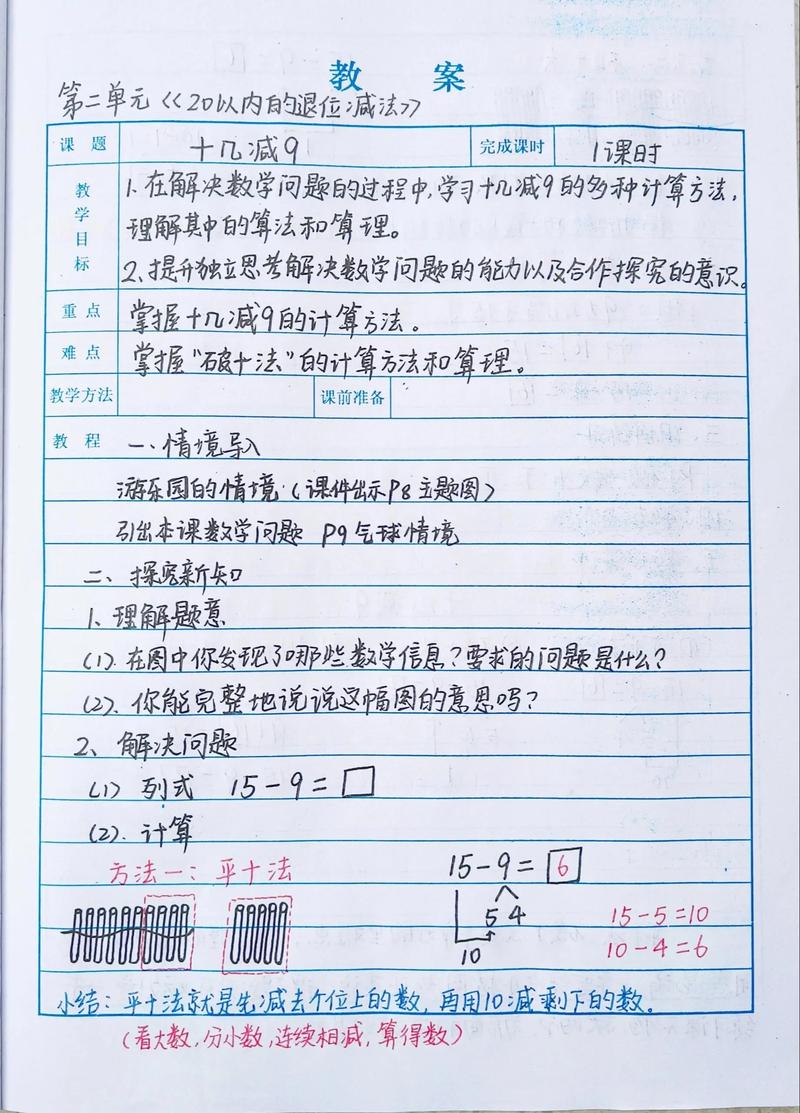 教 案
第二单元《20以内的退位减法》
课 题 十几减9 完成课时 1课时
教学目标 1.在解决数学问题的过程中,学习十几减9的多种计算方法,
理解其中的算法和算理。
2、提升独立思考解决数学问题的能力以及合作探究的意识。
重 点 掌握十几减9的计算方法。
难 点 掌握“破十法”的计算方法和算理。
教学方法 课前准备
教 程 一、情境导入
游乐园的情境(课件出示P8主题图)
引出本课数学问题 P9气球情境
二、探究新知
1、理解题意
(1).在图中你发现了哪些数学信息?要求的问题是什么?
(2).你能完整地说说这幅图的意思吗?
2、解决问题
(1) 列式 15-9=□
(2).计算
方法一:平十法 15-9=6
5 4 15-5=10
10 10-4=6
小结:平十法就是先减去个位上的数,再用10减剩下的数。
(看大数,分小数,连续相减,算得数)